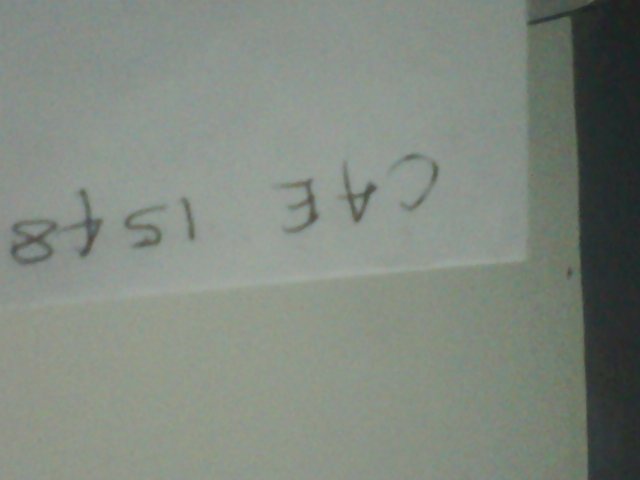 CAE 1548